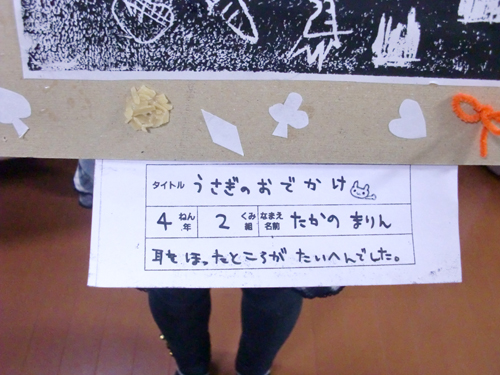 タイトル うさぎのおでかけ
4 ねん 年 2 くみ 組 なまえ 名前 たかの まりん
耳をほったところが たいへんでした。